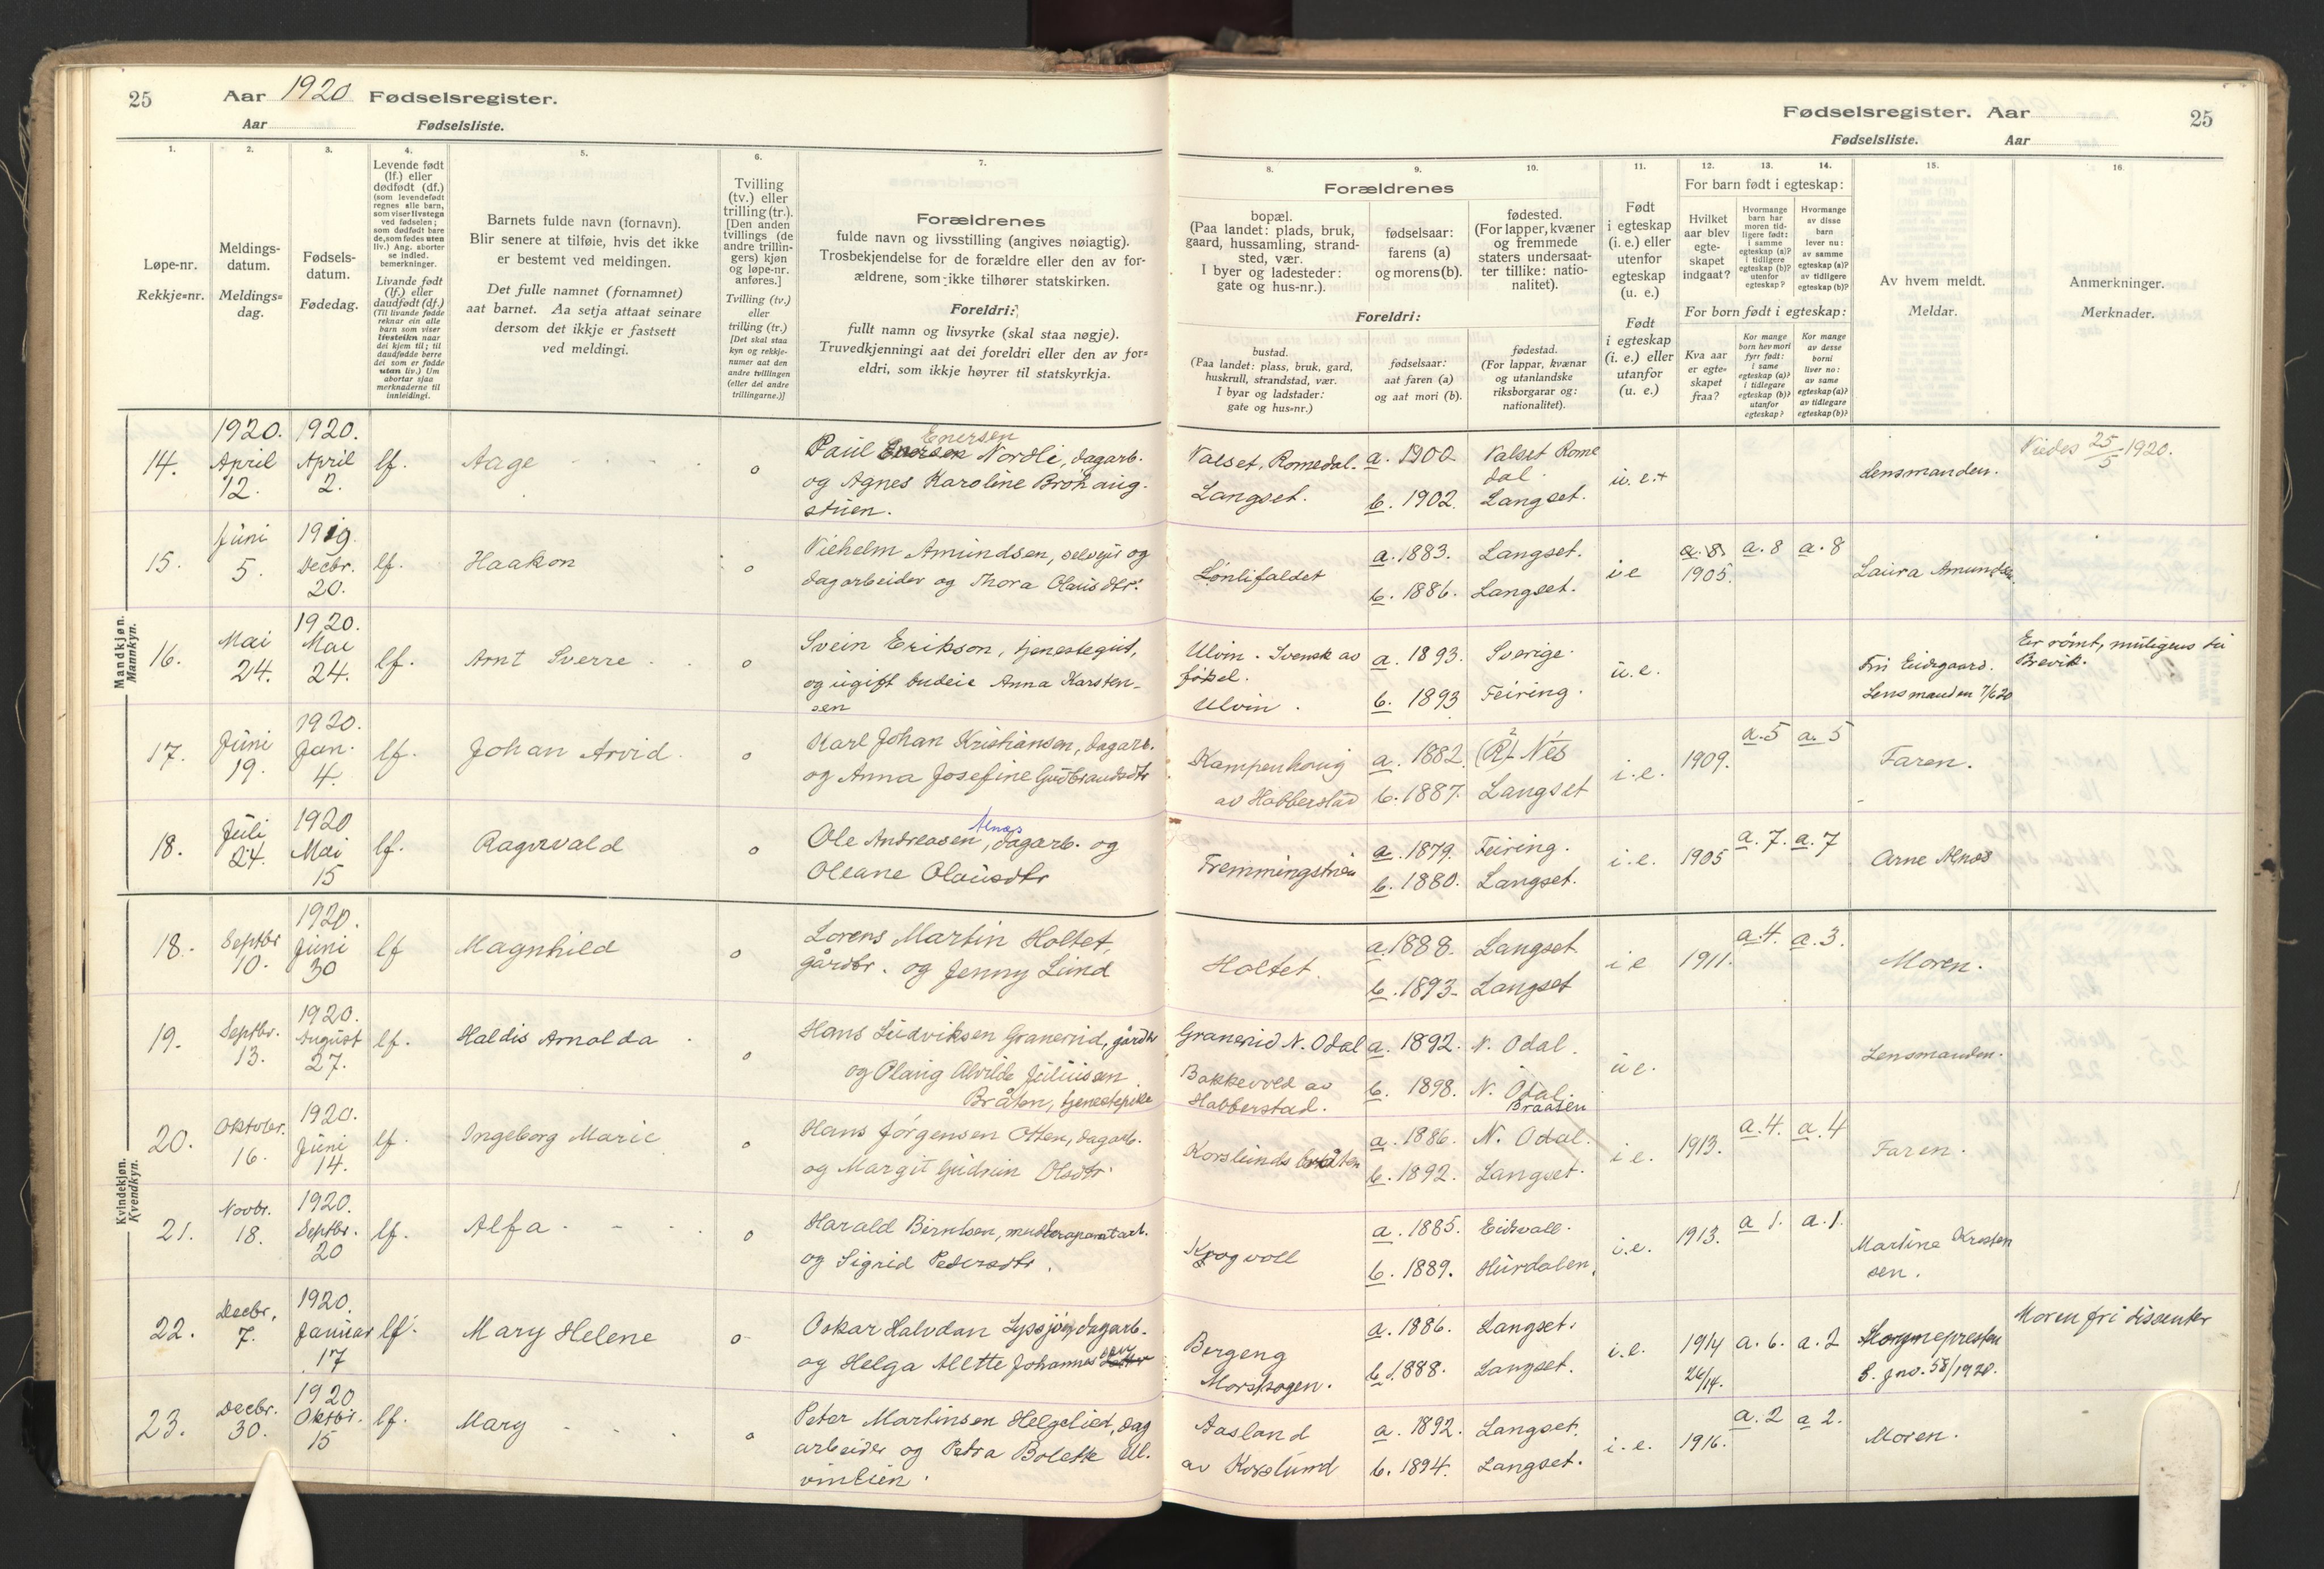 25 Aar 1920 Fødselsregister.
Aar Fødselsliste.
Fødselsregister. Aar 25
Fødselsliste. Aar
1. 2. 3. 4. 5. 6. 7.
8. 9. 10. 11. 12. 13. 14. 15. 16.
Løpe-nr.
Rekkje=nr.
Meldings-
datum.
Meldings=
dag.
Fødsels-
datum.
Fødedag.
Levende født
(lf.) eller
dødfødt (df.)
(som levendefødt
regnes alle barn,
som viser livstegn
ved fødselen;
som dødfødt bare
de, som fødes uten
liv.) Ang. aborter
se indled.
bemerkninger.
Livande født
(lf.) eller
daudfødt (df.)
(Til livande fødde
reknar ein alle
born som viser
lifsteikn naar
dei kjem til; til
daudfødde berre
dei som er fødde
utan liv.) Um
abortar sjaa
merknaderne til
innleidingi.
Barnets fulde navn (fornavn).
Blir senere at tilføie, hvis det ikke
er bestemt ved meldingen.
Det fulle namnet (fornamnet)
aat barnet. Aa setja attaat seinare
dersom det ikkje er fastsett
ved meldingi.
Tvilling
(tv.) eller
trilling (tr.).
[Den anden
tvillings (de
andre trillin-
gers) kjøn
og løpe-nr.
anføres.]
Tvilling (tv.)
eller
trilling (tr.)
[Det skal staa
kyn og rekkje-
numer aat den
andre tvillingen
(eller dei andre
trillingarne.)]
Forældrenes
fulde navn og livsstilling (angives nøiagtig).
Trosbekjendelse for de forældre eller den av for-
ældrene, som ikke tilhører statskirken.
Foreldri:
fullt namn og livsyrke (skal staa nøgje).
Truvedkjenningi aat dei foreldri eller den av for=
eldri, som ikkje høyrer til statskyrkja.
Forældrenes
bopæl.
(Paa landet: plads, bruk,
gaard, hussamling, strand-
sted, vær.
I byer og ladesteder:
gate og hus-nr.).
fødselsaar:
farens (a)
og morens (b).
fødested.
(For lapper, kvæner
og fremmede
staters undersaat-
ter tillike: natio-
nalitet).
Foreldri:
bustad.
(Paa landet: plass, bruk, gard,
huskrull, strandstad, vær.
I byar og ladstader:
gate og hus=nr.)
fødselsaar:
aat faren (a)
og aat mori (b).
fødestad.
(For lappar, kvænar
og utanlandske
riksborgarar og:
nationalitet).
Født
i egteskap
(i. e.) eller
utenfor
egteskap
(u. e.)
Født
i egteskap
(i. e.) eller
utanfor
(u. e.)
For barn født i egteskap:
Hvilket
aar blev
egte-
skapet
indgaat?
Hvormange
barn har
moren tid-
ligere født:
i samme
egteskap (a)?
i tidligere
egteskap (b)?
utenfor
egteskap?
Hvormange
av disse
barn
lever nu:
av samme
egteskap (a)?
av tidligere
egteskap (b)?
For born født i egteskap:
Kva aar
er egte=
skapet
fraa?
Kor mange
born hev mori
fyrr født:
i same
egteskap (a)?
i tidlegare
egteskap (b)?
utanfor
egteskap?
Kor mange
av desse
borni
liver no:
av same
egteskap (a)?
av tidlegare
egteskap (b)?
Av hvem meldt.
Meldar.
Anmerkninger.
Merknader.
Mandkjøn.
Mannkyn.
14. 1920. April 12. 1920. April 2. lf. Aage o
Paul Enersen Nordli, dagarb.
og Agnes Karoline Brohaug-
stuen.
Valset, Romedal. a. 1900 Valset Rome
dal.
Langset. b. 1902. Langset.
u. e.+ Lensmanden. Viedes 25/5 - 1920.
15. Juni 5. 1919. Decbr. 20. lf. Haakon o
Vilhelm Amundsen, selveier og
dagarbeider og Thora Olausdtr.
Lønlifaldet a. 1883. Langset.
b. 1886. Langset.
i e 1905. a. 8 a. 8 Laura Amundsen.
16. Mai 24. 1920. Mai 24. lf. Arnt Sverre o
Svein Erikson, tjenestegut,
og ugift budeie Anna Karsten-
sen
Ulvin. Svensk av a. 1893. Sverige.
fødsel.
Ulvin. b. 1893 Feiring.
u. e. Fru Eidsgaard.
Lensmanden 7/6 20
Er rømt, muligens til
Brevik.
17. Juni 19. 1920. Jan. 4. lf. Johan Arvid o
Karl Johan Kristiansen, dagarb.
og Anna Josefine Gudbrandsdtr
Kampenhaug a. 1882. (R) Nes
av Habberstad b. 1887. Langset
i. e. 1909. a. 5 a. 5 Faren.
18. Juli 24. 1920 Mai 15 lf. Ragnvald o
Ole Andreasen Alnæs, dagarb. og
Oleane Olausdtr
Fremmingstuen a. 1879. Feiring.
b. 1880. Langset.
i. e. 1905 a. 7. a. 7 Arne Alnæs
Kvindekjøn.
Kvendkyn.
18. Septbr 10. 1920. Juni 30 lf Magnhild o
Lorens Martin Holtet,
gårdbr. og Jenny Lund
Holtet. a. 1888. Langset
b. 1893. Langset
i e 1911. a. 4. a. 3. Moren.
19. Septbr. 13. 1920. August 27. lf. Haldis Arnolda o
Hans Ludviksen Granerud, gårdbr
og Olaug Alvilde Juliusen
Bråten, tjenestepike
Granerud N. Odal a. 1892. N. Odal.
Bakkevold av
Habberstad. b. 1898. N. Odal.
u e. Lensmanden.
20. Oktobr. 16. 1920. Juni 14. lf. Ingeborg Marie o
Hans Jørgensen Otten, dagarb.
og Margit Gudrun Olsdtr.
Braasen
Korslunds bråten a. 1886. N. Odal.
b. 1892. Langset.
i. e. 1913. a. 4. a. 4 Faren.
21. Novbr. 18. 1920. Septbr. 20 lf. Alfa o
Harald Berntsen, mudderaparatarb.
og Sigrid Pedersdtr.
Krogvoll a. 1885. Eidsvoll.
b. 1889. Hurdalen.
i. e. 1913. a 1. a. 1. Martine Krosten
sen.
22. Decbr. 7. 1920. Januar 17 lf. Mary Helene o
Oskar Halvdan Lyssjø, dagarb.
og Helga Alette Johannesen
Bergeng a. 1886. Langset.
Morskogen. b. 1888. Langset.
i. e. 1914 26/14. a. 6. a. 2 Sognepresten
E. jno. 58/1920.
Moren fri dissenter
23. Decbr. 30. 1920 Oktbr. 15 lf. Mary o
Peter Martinsen Helgelied, dag
arbeider og Petra Bolette Ul-
vinlien.
Aasland a. 1892. Langset.
av Korslund b. 1894. Langset.
i. e. 1916. a. 2 a 2. Moren.